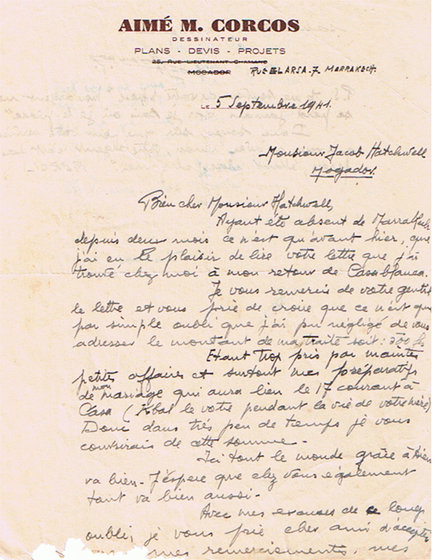 AIMÉ M. CORCOS
DESSINATEUR
PLANS - DEVIS - PROJETS
25, RUE LIEUTENANT CHAMAND
MOGADOR
RUE LARSA. 7 MARRAKECH.
LE 5 Septembre 1941.
Monsieur Jacob Hatchwell
Mogador.
Bien cher Monsieur Hatchwell,
Ayant été absent de Marrakech
depuis deux mois ce n'est qu'avant hier, que
j'ai eu le plaisir de lire votre lettre que j'ai
trouvé chez moi à mon retour de Casablanca.
Je vous remercie de votre gentille
lettre et vous prie de croire que ce n'est que
par simple oubli que j'ai pu négligé de vous
adresser le montant de ma traite soit:
Etant trop pris par maintes
petites affaires et surtout mes préparatifs
de mon mariage qui aura lieu le 17 courant à
Casa ( le votre pendant la vie de votre mère)
Donc dans très peu de temps je vous
couvrirais de cette somme.
Ici tout le monde grâce à Dieu
va bien. J'espère que chez vous également
tout va bien aussi.
Avec mes excuses de ce long
oubli, je vous prie cher ami d'accepter
mes remerciements, mes